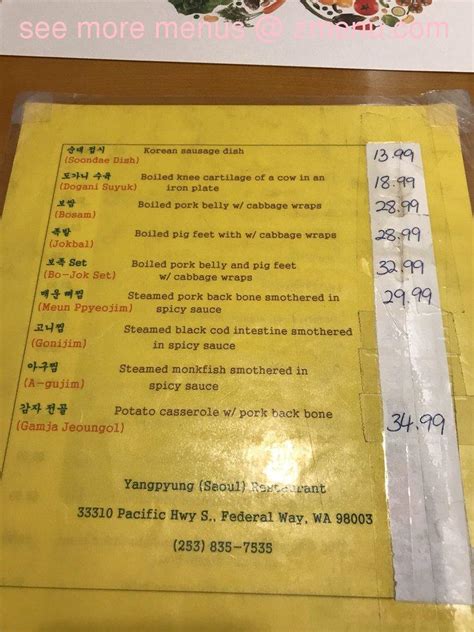 see more menus @ zmenu.com
순대 접시 Korean sausage dish 13.99
(Soondae Dish)
도가니 수육 Boiled knee cartilage of a cow in an 18.99
(Dogani Suyuk) iron plate
보쌈 Boiled pork belly w/ cabbage wraps 28.99
(Bosam)
족발 Boiled pig feet with w/ cabbage wraps 28.99
(Jokbal)
보족 Set Boiled pork belly and pig feet 32.99
(Bo-Jok Set) w/ cabbage wraps
매운 뼈찜 Steamed pork back bone smothered in 29.99
(Meun Ppyeojim) spicy sauce
고니찜 Steamed black cod intestine smothered
(Gonijim) in spicy sauce
아구찜 Steamed monkfish smothered in
(A-gujim) spicy sauce
감자 전골 Potato casserole w/ pork back bone 34.99
(Gamja Jeoungol)
Yangpyung (Seoul) Restaurant
33310 Pacific Hwy S., Federal Way, WA 98003
(253) 835-7535